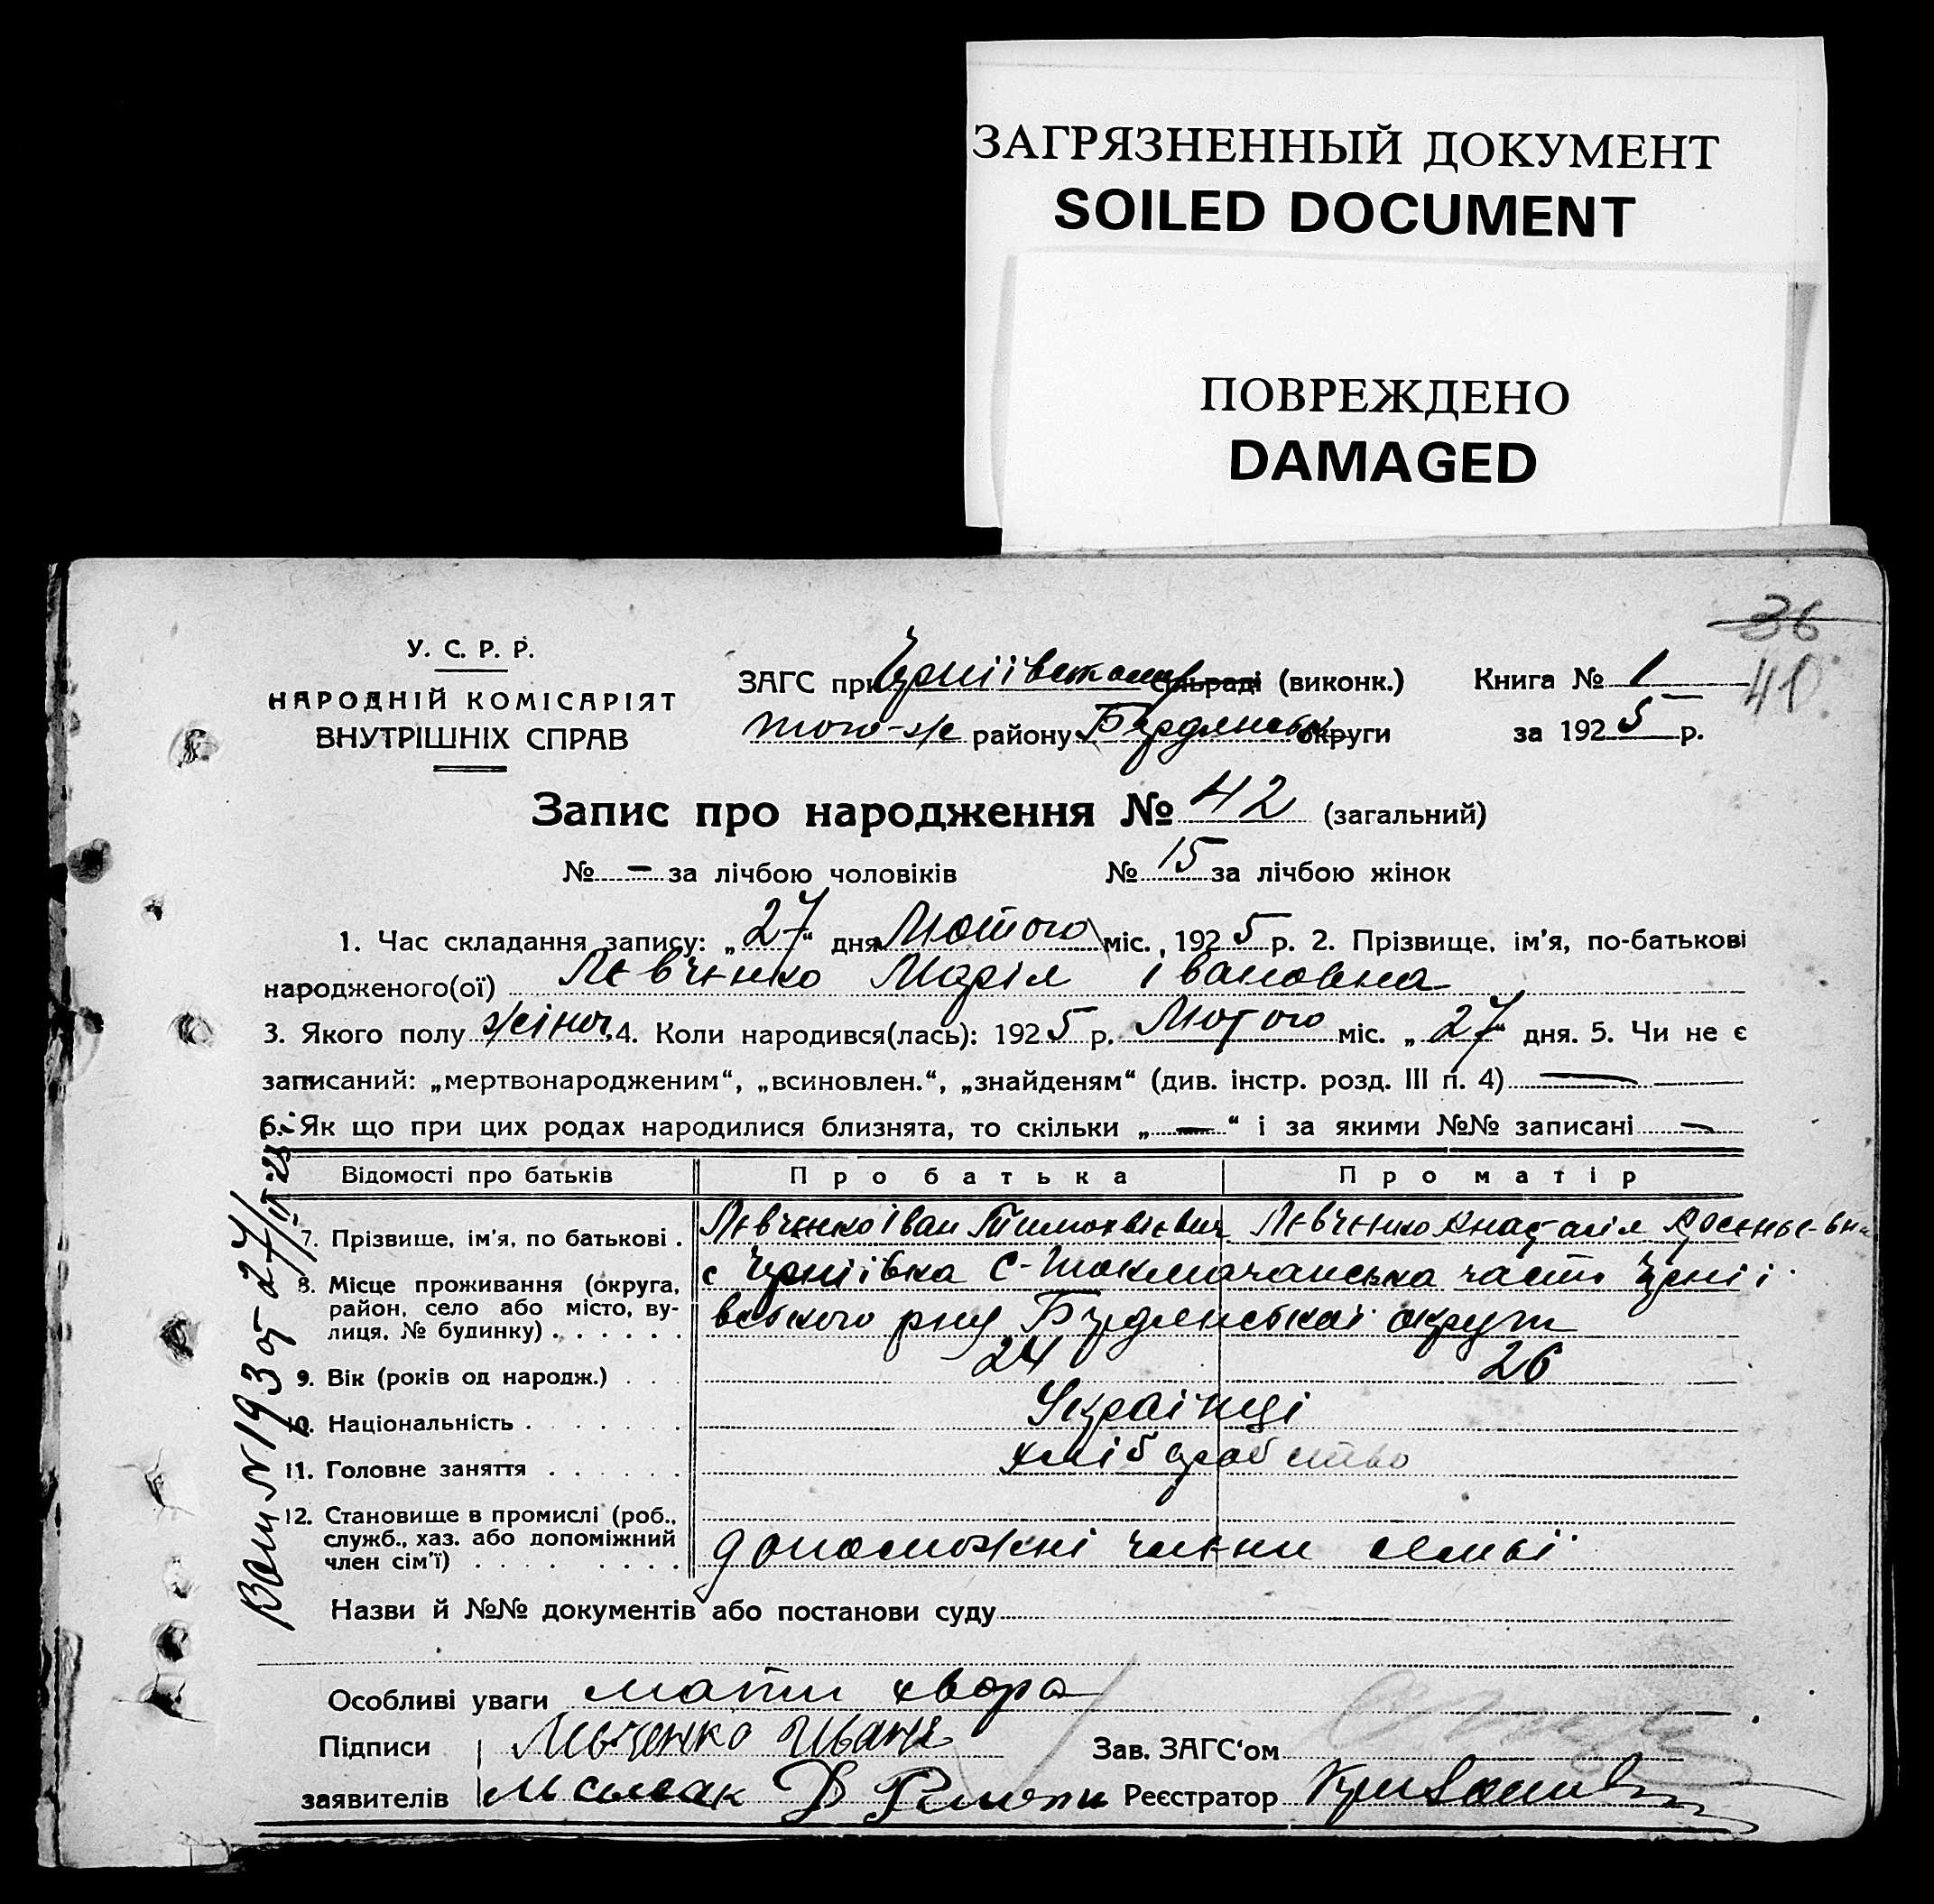 ЗАГРЯЗНЕННЫЙ ДОКУМЕНТ
SOILED DOCUMENT
ПОВРЕЖДЕНО
DAMAGED
36
40
У. С. Р. Р.
НАРОДНІЙ КОМІСАРІЯТ
ВНУТРІШНІХ СПРАВ
ЗАГС при сільраді (виконк.)
того-же району Бердянськ округи
Книга № 1
за 1925 р.
Запис про народження № 42 (загальний)
№ – за лічбою чоловіків № 15 за лічбою жінок
1. Час складання запису: „27“ дня Лютого міс., 1925 р. 2. Прізвище, ім'я, по-батькові
народженого(ої) Левченко Марія Івановна
3. Якого полу жіноч. 4. Коли народився(лась): 1925 р. Лютого міс. „27“ дня. 5. Чи не є
записаний: „мертвонародженим“, „всиновлен.“, „знайденям“ (див. інстр. розд. III п. 4) —
6. Як що при цих родах народилися близнята, то скільки „—“ і за якими №№ записані —
Відомості про батьків Про батька Про матір
7. Прізвище, ім'я, по батькові . Левченко Іван Левченко
8. Місце проживання (округа, район, село або місто, вулиця, № будинку) . . . . . . с Черніівка С-Токмачанська часть Черніі
вського рну Бердянськоі округи
9. Вік (років од народж.) . . . 24 26
10. Національність . . . . . . . Українці
11. Головне заняття . . . . . . хліборобство
12. Становище в промислі (роб., служб., хаз. або допоміжний член сім'ї) . . . . . . . . допоможні члени семьі
Назви й №№ документів або постанови суду
Особливі уваги мати хвора
Підписи Левченко Иван Зав. ЗАГС'ом
заявителів Реєстратор